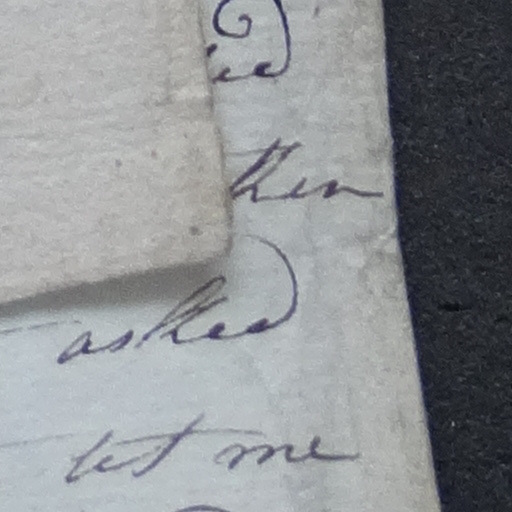 then
asked
let me